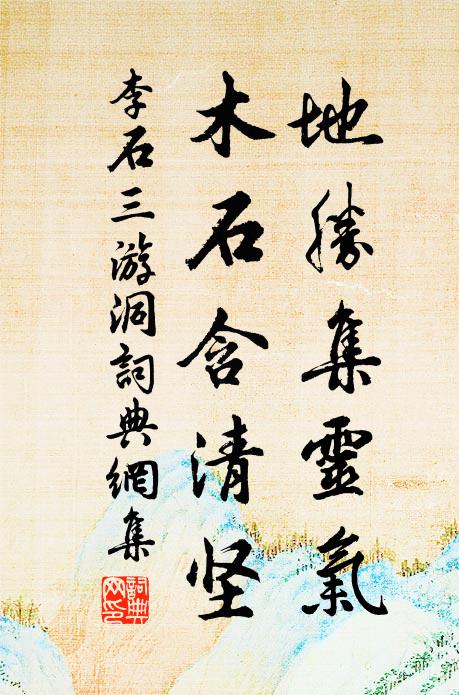 地勝集靈氣
木石含清坚
李石三游洞詞典網集
詞典